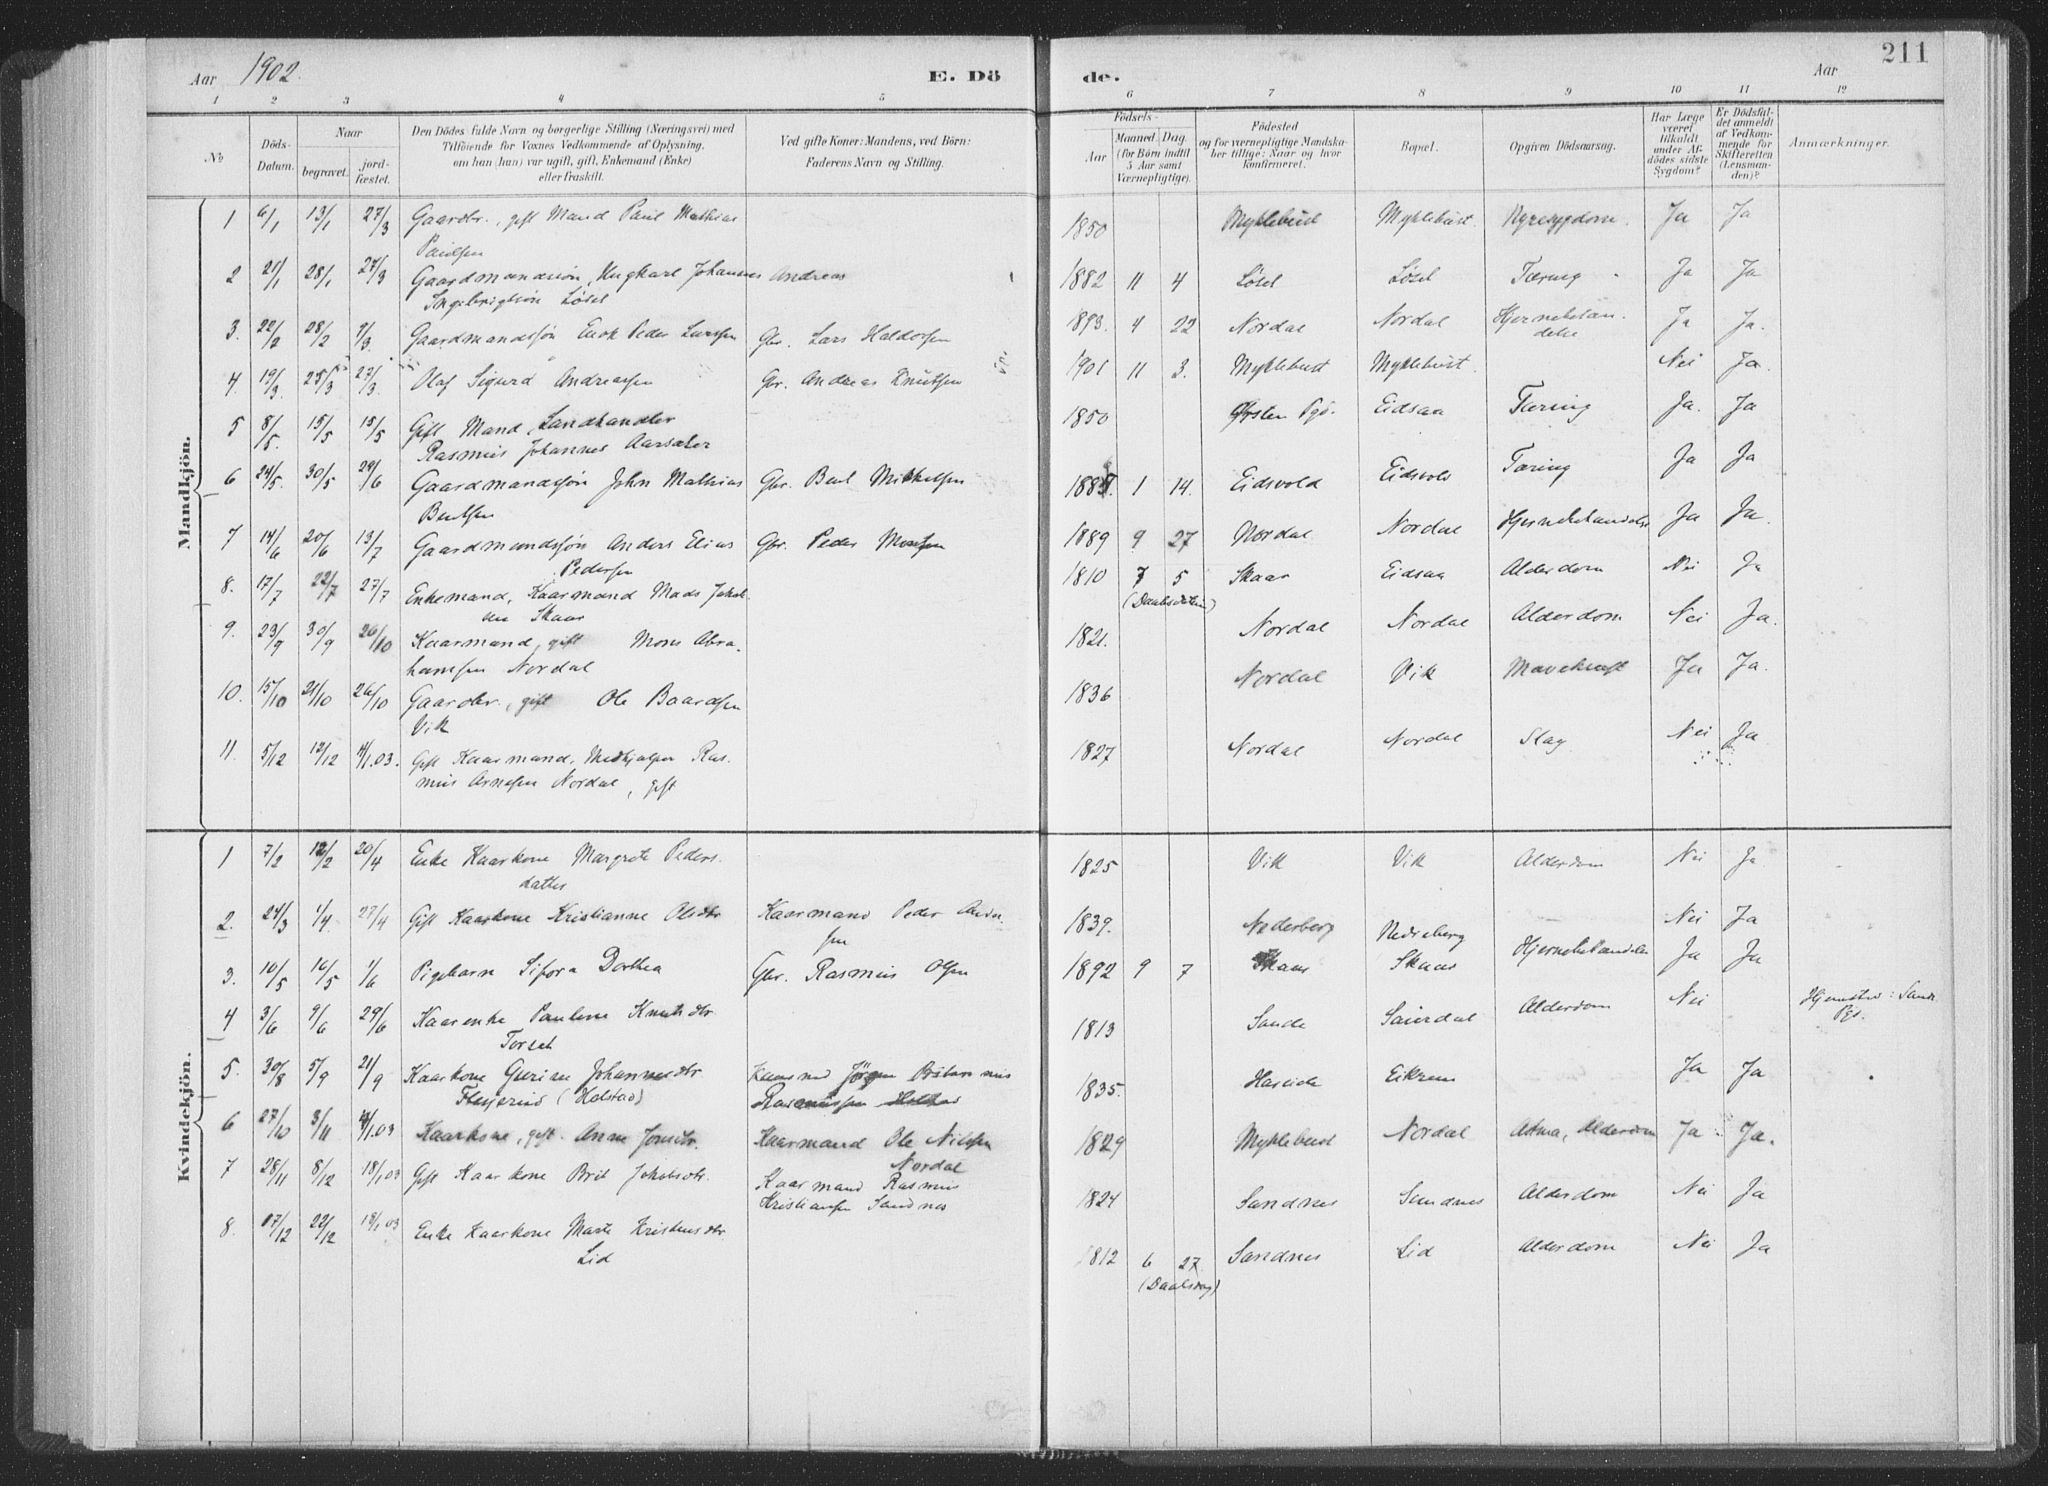 Aar 1902. E. Dö
de. Aar 211
1 2 3 4 5 6 7 8 9 10 11 12
No Döds-Datum. Naar begravet. jord-fæstet. Den Dödes fulde Navn og borgerlige Stilling (Næringsvei) med Tilföiende for Voxnes Vedkommende af Oplysning, om han (hun) var ugift, gift, Enkemand (Enke) eller fraskilt. Ved gifte Koner: Mandens, ved Börn: Faderens Navn og Stilling.
Födsels- Aar Maaned Dag. (for Börn indtil 5 Aar samt Værnepligtige). Födested og for værnepligtige Mandskaber tillige: Naar og hvor konfirmeret. Bopæl. Opgiven Dödsaarsag. Har Læge været tilkaldt under Afdödes sidste Sygdom? Er Dödsfaldet anmeldt af Vedkommende for Skifteretten (Lensmanden)? Anmærkninger.
Mandkjön.
1 6/1 13/1 27/3 Gaardbr., gift Mand Paul Mathias 1850 Myklebust Myklebust. Nyresygdom. Ja Ja
Paulsen
2 21/1 28/1 27/3 Gaardmandssön, Ungkarl Johannes Andreas 1882 11 4 Lösel Lösel Tæring Ja Ja
Ingebrigtsön Lösel
3. 22/2 28/2 9/3. Gaardmandssjön Enok Peder Larssen Gbr. Lars Haldorsen 1893. 4 22 Nordal Nordal Hjernebetæn- Ja Ja.
delse
4. 19/3. 25/3 27/3. Olaf Sigurd Andreassen Gbr. Andreas Knutsen 1901 11 3. Myklebust Myklebust. Nei Ja.
5 8/5. 15/5 15/5 Gift Mand, Landhandler 1850 Örsten Pgd. Eidsaa Tæring Ja. Ja
Rasmus Johannes Aarsæter
6 24/5. 30/5 29/6 Gaardmandssön John Mathias Gbr. Bent Mikkelsen 1 14. Eidsvold Eidsvold Tæring Ja Ja
Bentsen
7 14/6 20/6 13/7 Gaardmandssjön Anders Elias Gbr. Peder 1889 9 27 Nordal Nordal Hjernebetændelse Ja Ja.
Pedersen
8. 17/7 22/7 27/7 Enkemand, Kaarmand Mads Jakob- 1810 7 5 Skaar Eidsaa Alderdom Nei Ja
sen Skaar
9. 23/9 30/9 26/10 Kaarmand, gift Mons Abra- 1821. Nordal Nordal Alderdom Nei Ja.
hamsen Nordal
10. 15/10 21/10 26/10 Gaardbr., gift Ole Baardsen 1836 Nordal Vik Mavekræft Ja Ja.
Vik
11. 5/12 12/12 4/1.03. Gift Kaarmand, Medhjælper Ras- 1827 Nordal Nordal Slag Nei Ja
mus Arnesen Nordal, gift
Kvindekjön.
1 7/2 12/2 20/4 Enke Kaarkone Margrete Peders- 1825 Vik Vik Alderdom Nei Ja
datter
2. 24/3 1/4. 27/4 Gift Kaarkone Kristianne Olsdtr Kaarmand Peder 1839. Nederberg Nedreberg Nei Ja
sen
3. 10/5 16/5 1/6 Pigebarn Sifora Dorthea Gbr. Rasmus Olsen 1892 9 7 Skaar Skaar Hjernebetændelse Ja Ja
4 3/6 9/6 29/6 Kaarenke Pauline Knutsdtr 1813 Sande Alderdom Nei Hjemsted: Sande
Torset Pgd.
5. 30/8 5/9 21/9 Kaarkone Gurine Johannesdtr 1835. Hareide Eikrem Ja Ja
(Holstad) Rasmussen
6 27/10 3/11 4/1.03 Kaarkone, gift. Anne Jonsdtr. Kaarmand Ole Nilssen 1829 Myklebust Nordal Astma, Alderdom Ja Ja.
Nordal
7 28/11 8/12 18/1 03 Gift Kaarkone Brit Jakobsdtr. Kaarmand Rasmus 1824 Sandnes Sandnes Alderdom Nei Ja
Kristiansen Sandnes
8. 17/12 22/12 18/1 03 Enke Kaarkone Marte Kristensdtr 1812 6 27. Sandnes Lid Alderdom Nei Ja
Lid (Daabsdag)